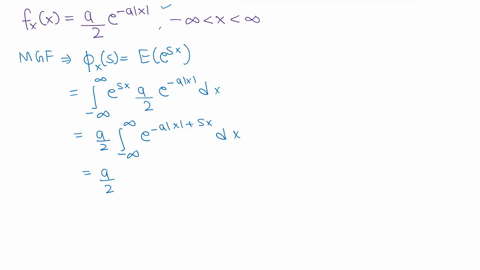 fₓ(x) = a/2 e^{-a|x|}, -∞ < x < ∞
MGF ⇒ ϕₓ(s) = E(e^{sx})
= ∫_{-∞}^{∞} e^{sx} a/2 e^{-a|x|} dx
= a/2 ∫_{-∞}^{∞} e^{-a|x|+sx} dx
= a/2